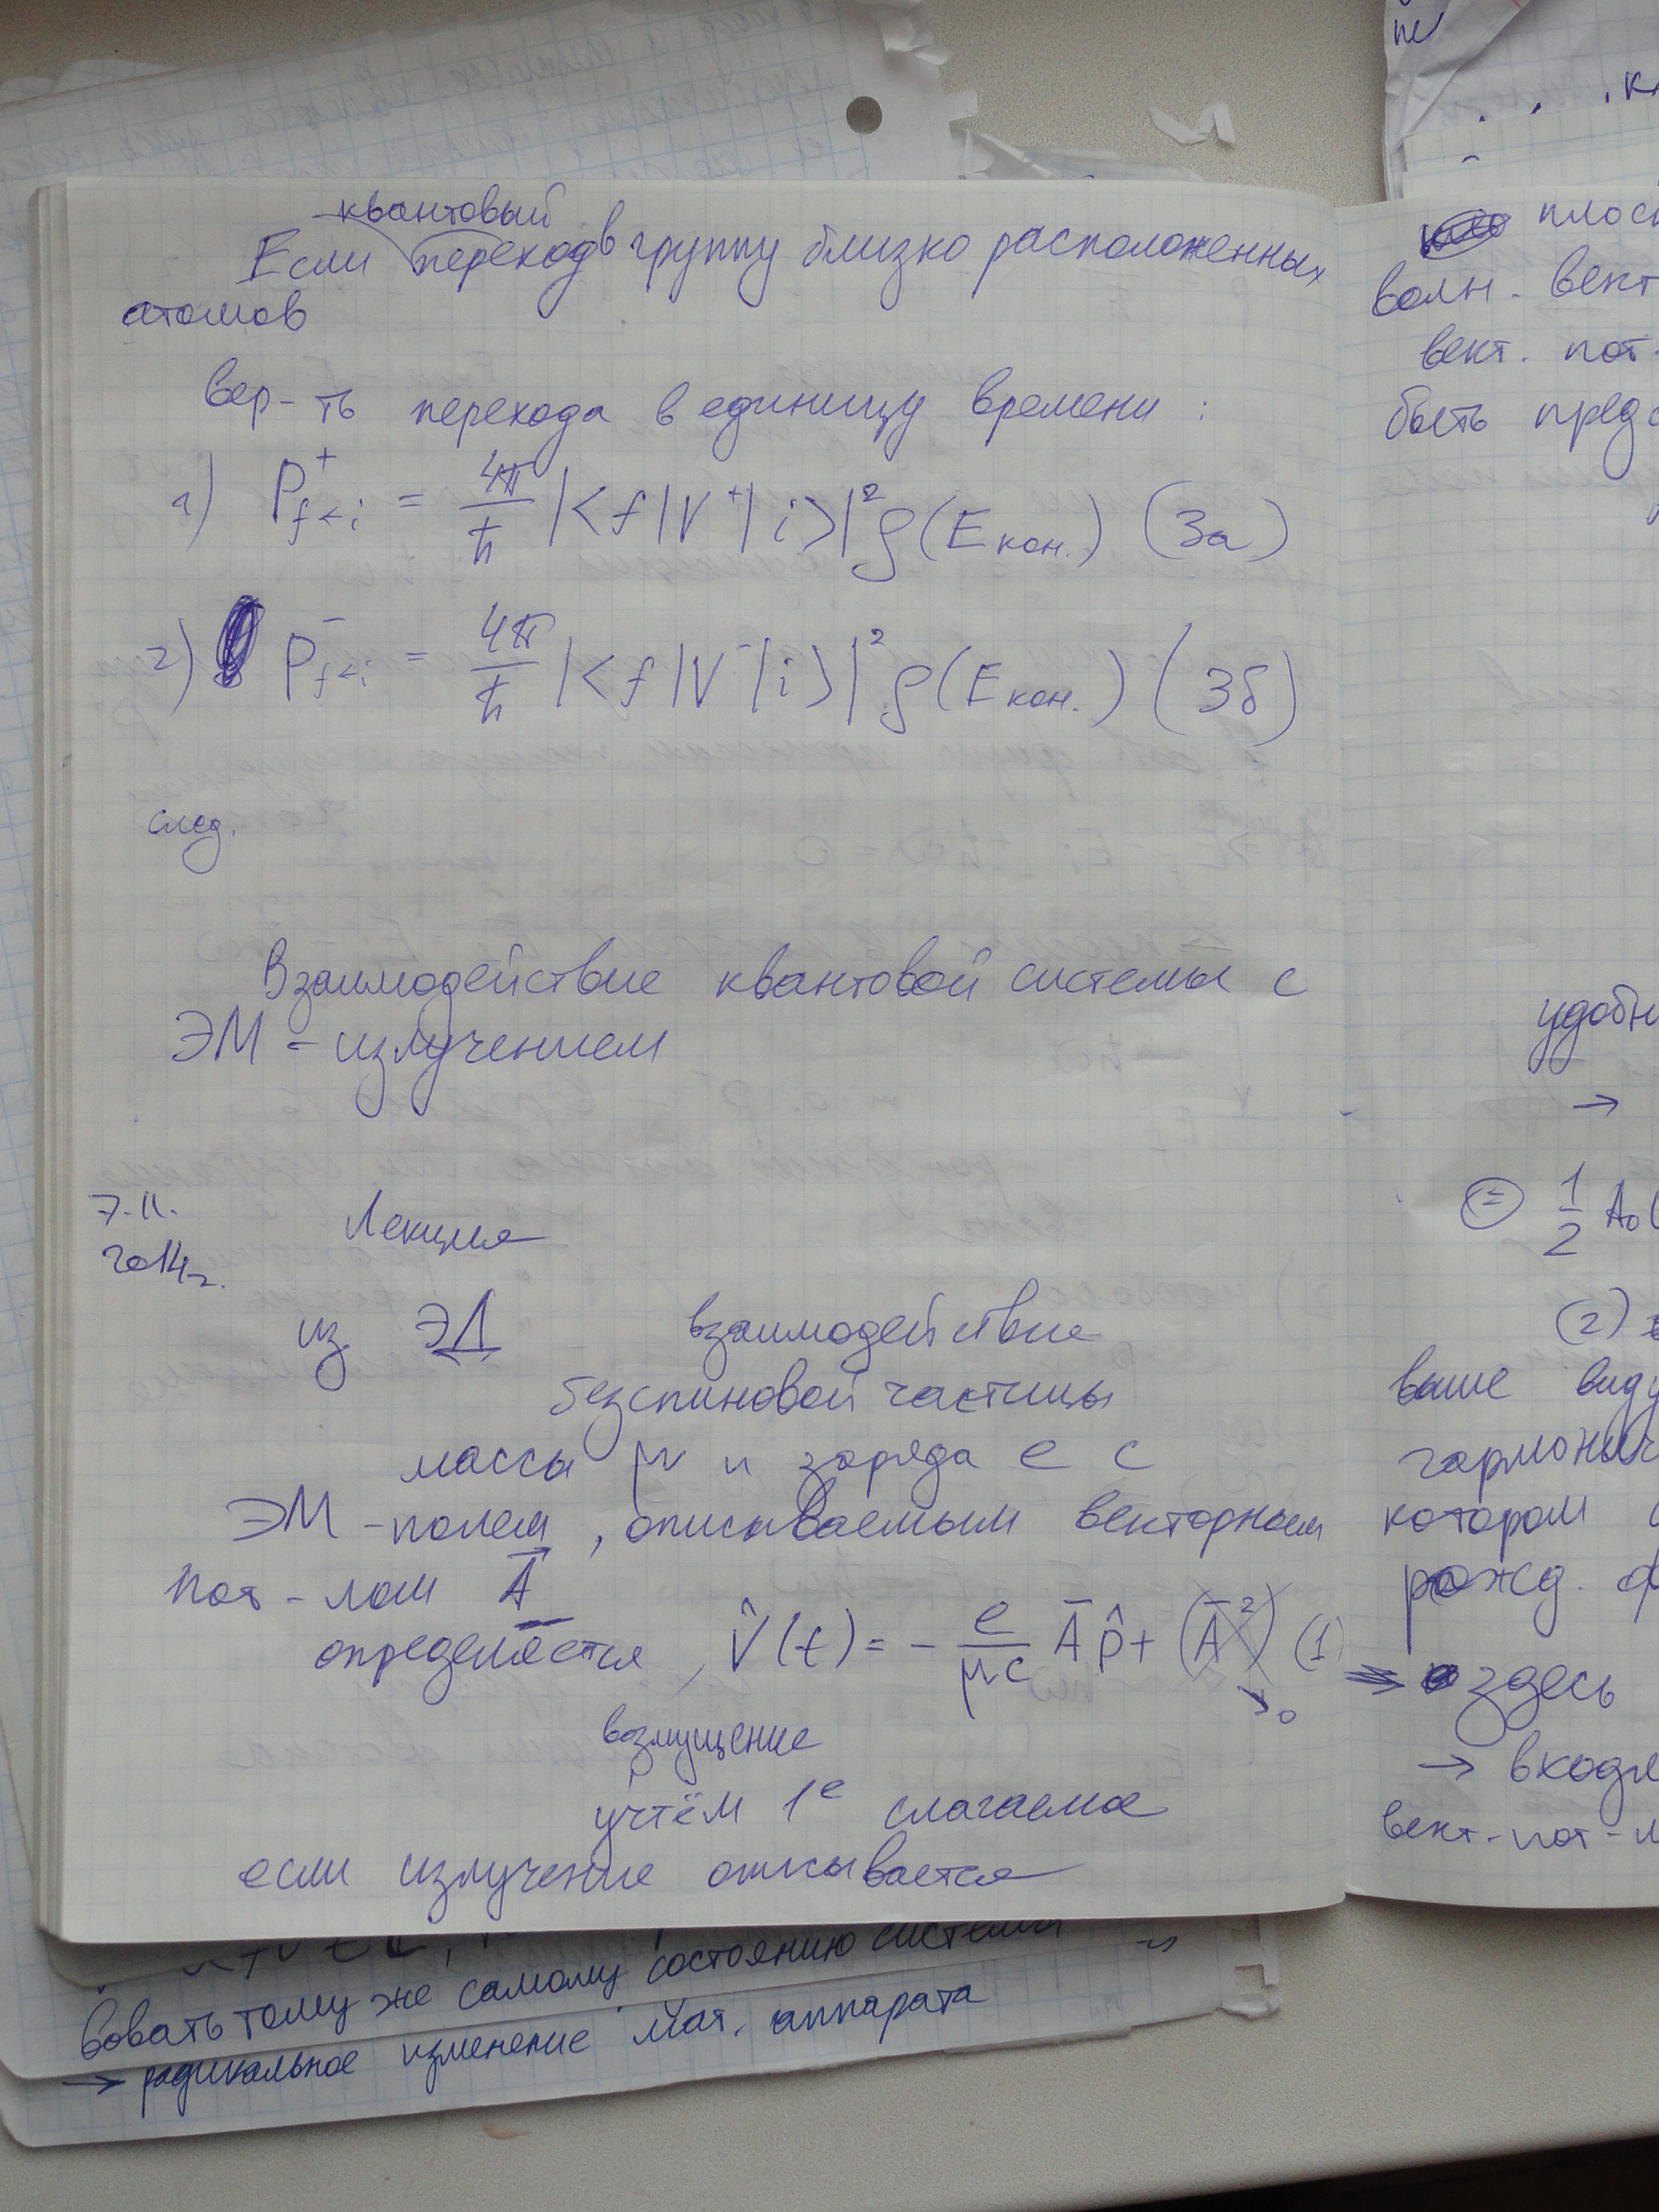 квантовый
Если переход в группу близко расположенных
атомов
вер-ть перехода в единицу времени :
1) P⁺_{f←i} = 4π/ħ |<f|V⁺|i>|² ρ(E кон.) (3а)
2) P⁻_{f←i} = 4π/ħ |<f|V⁻|i>|² ρ(E кон.) (3б)
след.
Взаимодействие квантовой системы с
ЭМ - излучением
7.11.
2014г.
Лекция
из ЭД взаимодействие
безспиновой частицы
массы μ и заряда e с
ЭМ - полем , описываемым векторным
пот - лом A⃗
определяется , V̂(t) = - e/μc A̅ p̂ + (A̅²) (1)
→0
возмущение
учтём 1е слагаемое
если излучение описывается
плос
волн. вект
вект. пот-
быть пред
удобн
→
= 1/2 A₀(
(2)
выше виду
гармонич
котором
рожд.
здесь
→ входя
вект-пот-л
вовать тому же самому состоянию системы
→ радикальное изменение мат. аппарата